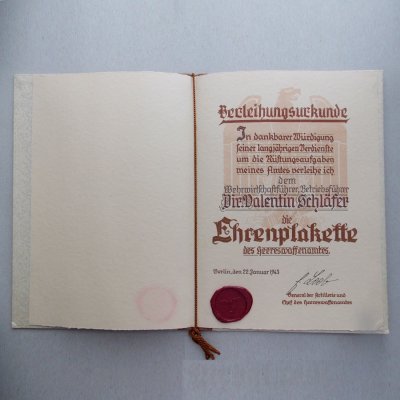 Verleihungsurkunde
In dankbarer Würdigung
seiner langjährigen Verdienste
um die Rüstungsaufgaben
meines Amtes verleihe ich
dem
Wehrwirtschaftführer, Betriebsführer
Dir. Valentin Schläfer
die
Ehrenplakette
des Heereswaffenamtes.
Berlin, den 22. Januar 1943
General der Artillerie und
Chef des Heereswaffenamtes